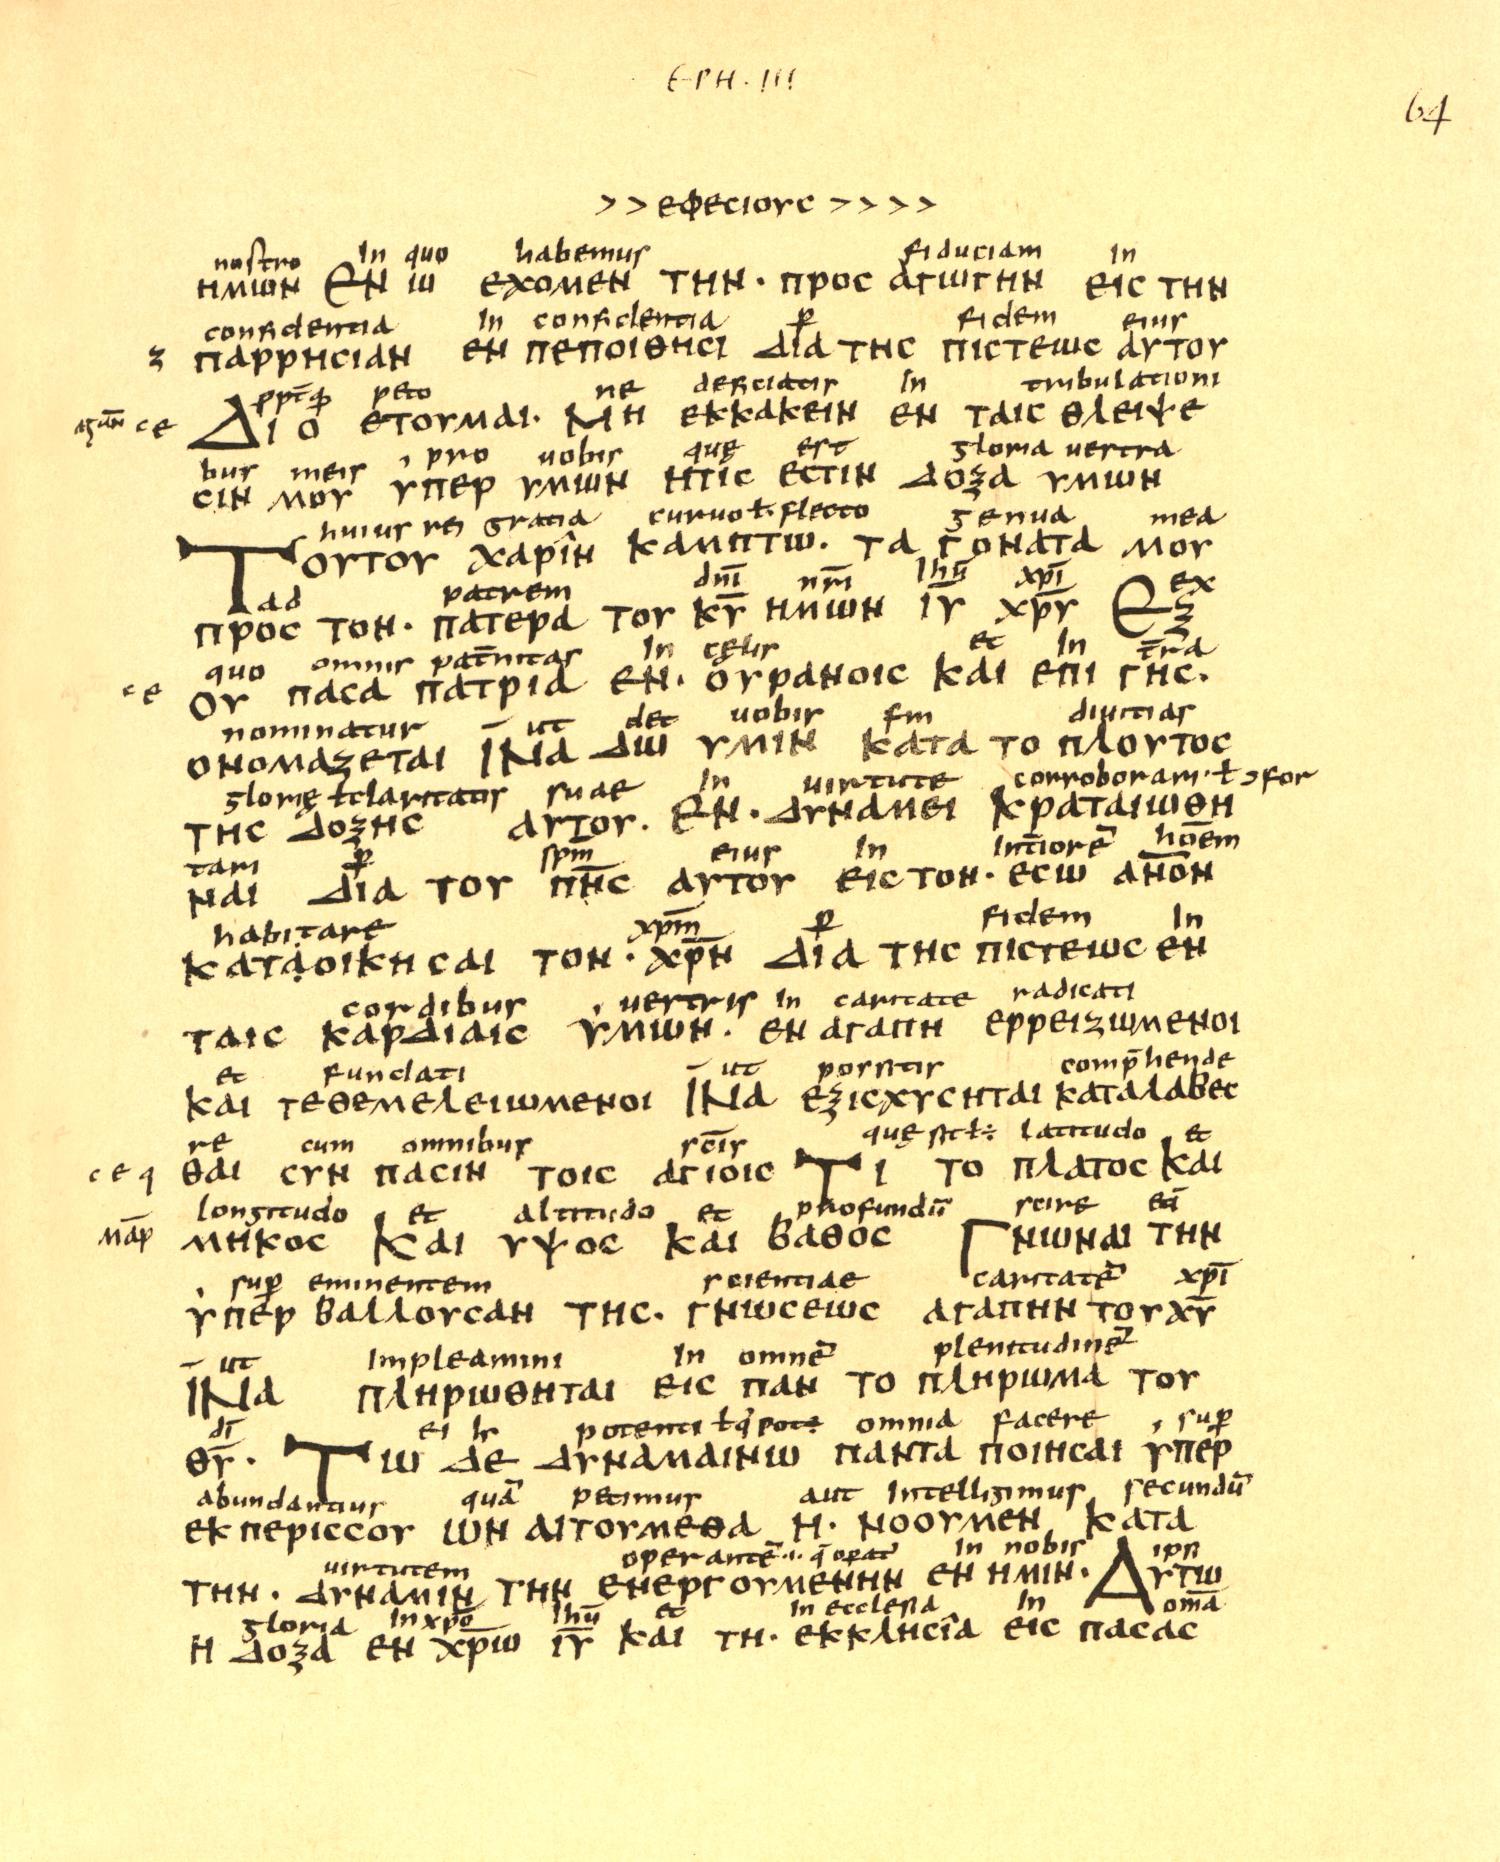 ΕΡΗ·III
64
> > εφεcιογc > > > >
nostro In quo habemus fiduciam In
ημων Εν ω εχομεν την· προc αγωγην ειc την
confidentia In confidentia p̄ fidem eius
ʒ παρρηcιαν εν πεποιθηcι δια τηc πιcτεωc αυτου
pptq̄ peto ne deficiatis In tribulationi
ce Διο ετουμαι· Μη εκκακειν εν ταιc θλειψε
bus meis pro uobis quę est gloria vestra
cιν μου υπερ υμων ητιc εcτιν δοξα υμων
huius rei gratia curuo ł· flecto genua mea
Τουτου χαριν καμπτω· τα γονατα μου
ad patrem dn̄i nr̄i Ihū xp̄i ex
προc τον· πατερα του κ̄υ ημων ῑυ χρ̄υ Εξ
quo omnis pat̄nitas In cęlis et In t̄ra
ce ου παcα πατρια εν· ουρανοιc και επι γηc·
nominatur ut det uobis sm diuitias
ονομαζεται Ινα δω υμιν κατα το πλουτοc
glorię ł claritatis suae In uirtute corroborari· ł ɔfor
τηc δοξηc αυτου· Εν· δυναμει κραταιωθη
tari p̄ sp̄m eius In Int̄iorē hōem
ναι δια του πν̄c αυτου ειc τον· εcω ανο̄ν
habitare xpm̄ p̄ fidem In
καταοικηcαι τον· χρ̄ν δια τηc πιcτεωc εν
cordibus vestris In caritate radicati
ταιc καρδιαιc υμων· εν αγαπη ερρειζωμενοι
et fundati ut possitis comp̄hende
και τεθεμελειωμενοι Ινα εξιcχυcηται καταλαβεc
re cum omnibus sc̄is quę sit ł ÷ latitudo et
c e q θαι cυν παcιν τοιc αγιοιc Τι το πλατοc και
longitudo et altitudo et profundū scire etā
μηκοc Και υψοc και βαθοc Γνωναι την
sup̄ eminentem scientiae caritatē xp̄i
υπερ βαλλουcαν τηc· γνωcεωc αγαπην του χ̄υ
ut Impleamini In omnē plenitudinē
Ινα πληρωθηται ειc παν το πληρωμα του
dī ei potenti ł q̄ potē omnia facere sup̄
θ̄υ· Τω δε δυναμαινω παντα ποιηcαι υπερ
abundantius quā petimus aut Intelligimus secundū
εκ περιccου ων αιτουμεθα η· νοουμεν κατα
uirtutem operantē ·i· q̄ opat̄ In nobis ipsi
την· δυναμιν την ενεργουμενην εν ημιν· Αυτω
gloria In xpo̅ Ihū et In ecclesia In om̄a
η δοξα εν χρ̄ω ῑυ και τη· εκκληcια ειc παcαc